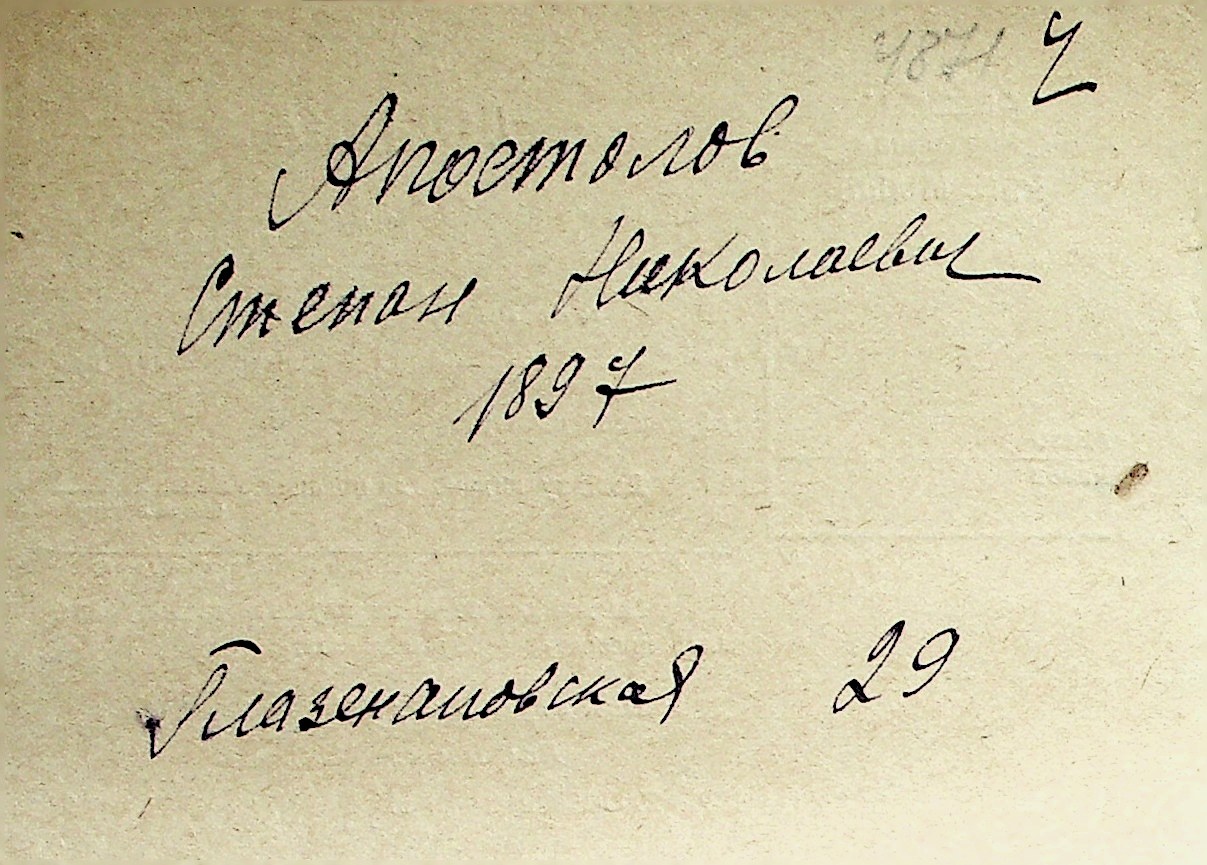 Апостолов
Степан Николаевич
1897
Глазенаповская 29